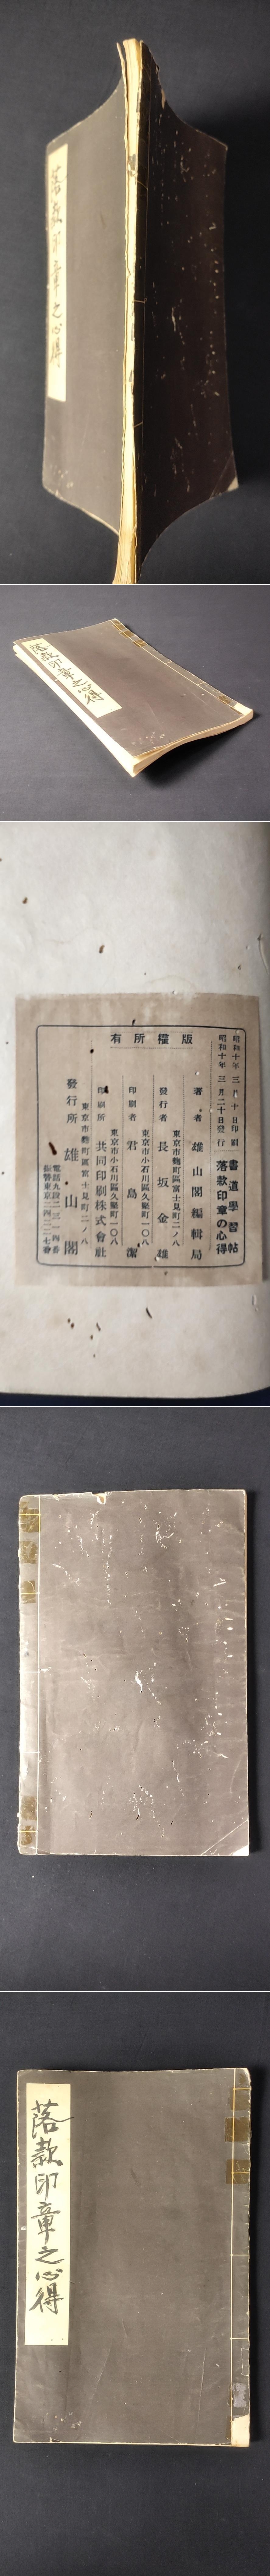 落款印章之心得
落款印章之心得
版權所有
昭和十年三月十日印刷
昭和十年三月二十日發行
書道學習帖
落款印章の心得
著者 雄山閣編輯局
東京市麴町區富士見町二ノ八
發行者 長坂金雄
東京市小石川區久堅町一〇八
印刷者 君島潔
東京市小石川區久堅町一〇八
印刷所 共同印刷株式會社
東京市麴町區富士見町二ノ八
發行所 雄山閣
落款印章之心得